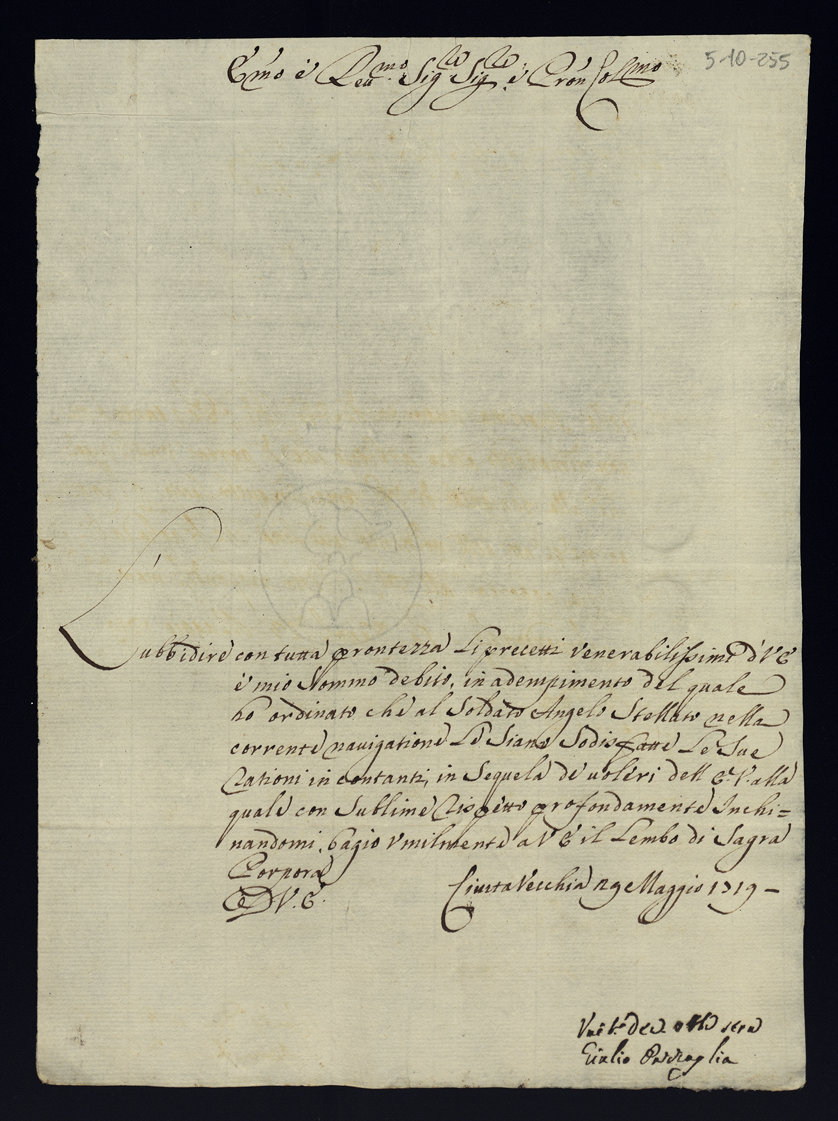 5-10-255
Emo è Reumo Sigre Sigre è Prōn Colmo
L'ubbidirè con tuttà prontezzà Li precetti venerabilissimi d'V E
è mio Sommo debito, in adempimento del quale
ho ordinato chè al Soldato Angelo Stellato nella
correntè navigationè Lè Siano Sodisfattè Le Sue
Rationi in contanti, in Sequelà dè uoleri dell' E. V. alla
qualè con Sublimè Rispetto profondamentè Inchi=
nandomi, bagio vmilmentè a V E il Lembo di Sagra
Porporà
D V. E.
CiuitaVecchià 29 Maggio 1719 –
Vmil.
Giulio